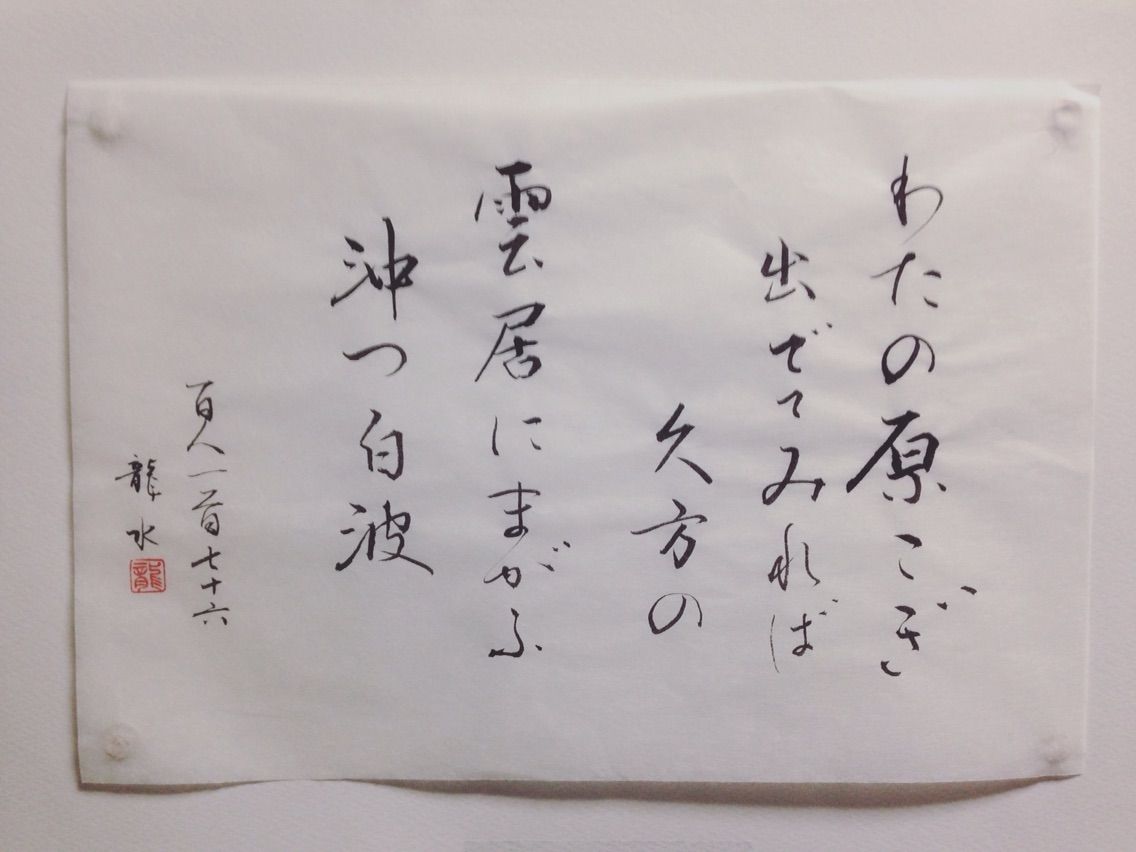 わたの原こぎ
出でてみれば
久方の
雲居にまがふ
沖つ白波
百人一首七十六
龍水
龍